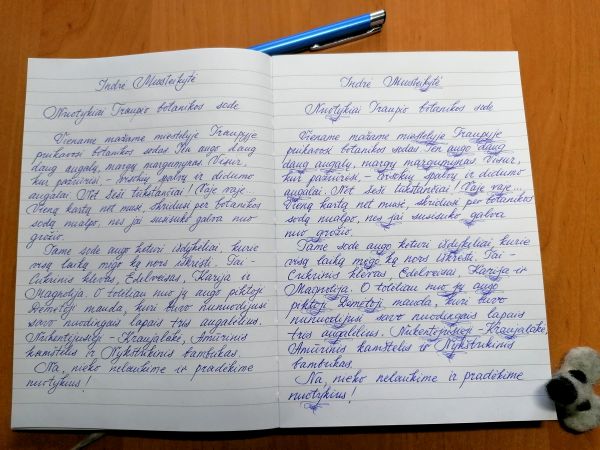 Indrė Musteikytė
Nuotykiai Traupio botanikos sode
Viename mažame miestelyje Traupyje
puikavosi botanikos sodas. Ten augo daug
daug augalų, margų margumynas. Visur,
kur pažiūrėsi, - įvairių spalvų ir didumo
augalai. Net šeši tūkstančiai! Vaje vaje...
Vieną kartą net musė, skridusi per botanikos
sodą nualpo, nes jai susisuko galva nuo
grožio.
Tame sode augo keturi išdykėliai, kurie
visą laiką mėgo ką nors iškrėsti. Tai -
Cukrinis klevas, Edelveisas, Karija ir
Magnolija. O toliau nuo jų augo piktoji
Dėmėtoji mauda, kuri buvo nunuodijusi
savo nuodingais lapais tris augalėlius.
Nukentėjusieji - Kraujalakė, Amūrinis
kamštelis ir Nykštukinis bambukas.
Na, nieko nelaukime ir pradėkime
nuotykius!
Indrė Musteikytė
Nuotykiai Traupio botanikos sode
Viename mažame miestelyje Traupyje
puikavosi botanikos sodas. Ten augo daug
daug augalų, margų margumynas. Visur,
kur pažiūrėsi, - įvairių spalvų ir didumo
augalai. Net šeši tūkstančiai! Vaje vaje...
Vieną kartą net musė, skridusi per botanikos
sodą nualpo, nes jai susisuko galva
nuo grožio.
Tame sode augo keturi išdykėliai, kurie
visą laiką mėgo ką nors iškrėsti. Tai -
Cukrinis klevas, Edelveisas, Karija ir
Magnolija. O toliau nuo jų augo
piktoji Dėmėtoji mauda, kuri buvo
nunuodijusi savo nuodingais lapais
tris augalėlius. Nukentėjusieji - Kraujalakė,
Amūrinis kamštelis ir Nykštukinis
bambukas.
Na, nieko nelaukime ir pradėkime
nuotykius!